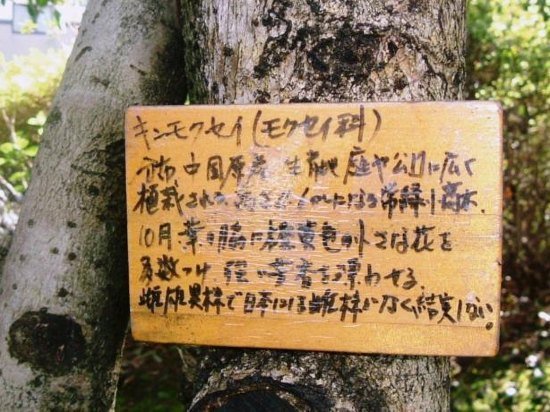 キンモクセイ(モクセイ科)
分布 中国原産 生垣や庭や公園に広く
植栽される 高さ くらいになる常緑小高木。
10月、葉の脇に橙黄色の小さな花を
多数つけ 強い芳香を漂わせる。
雌雄異株で日本には雌株がなく結実しない。